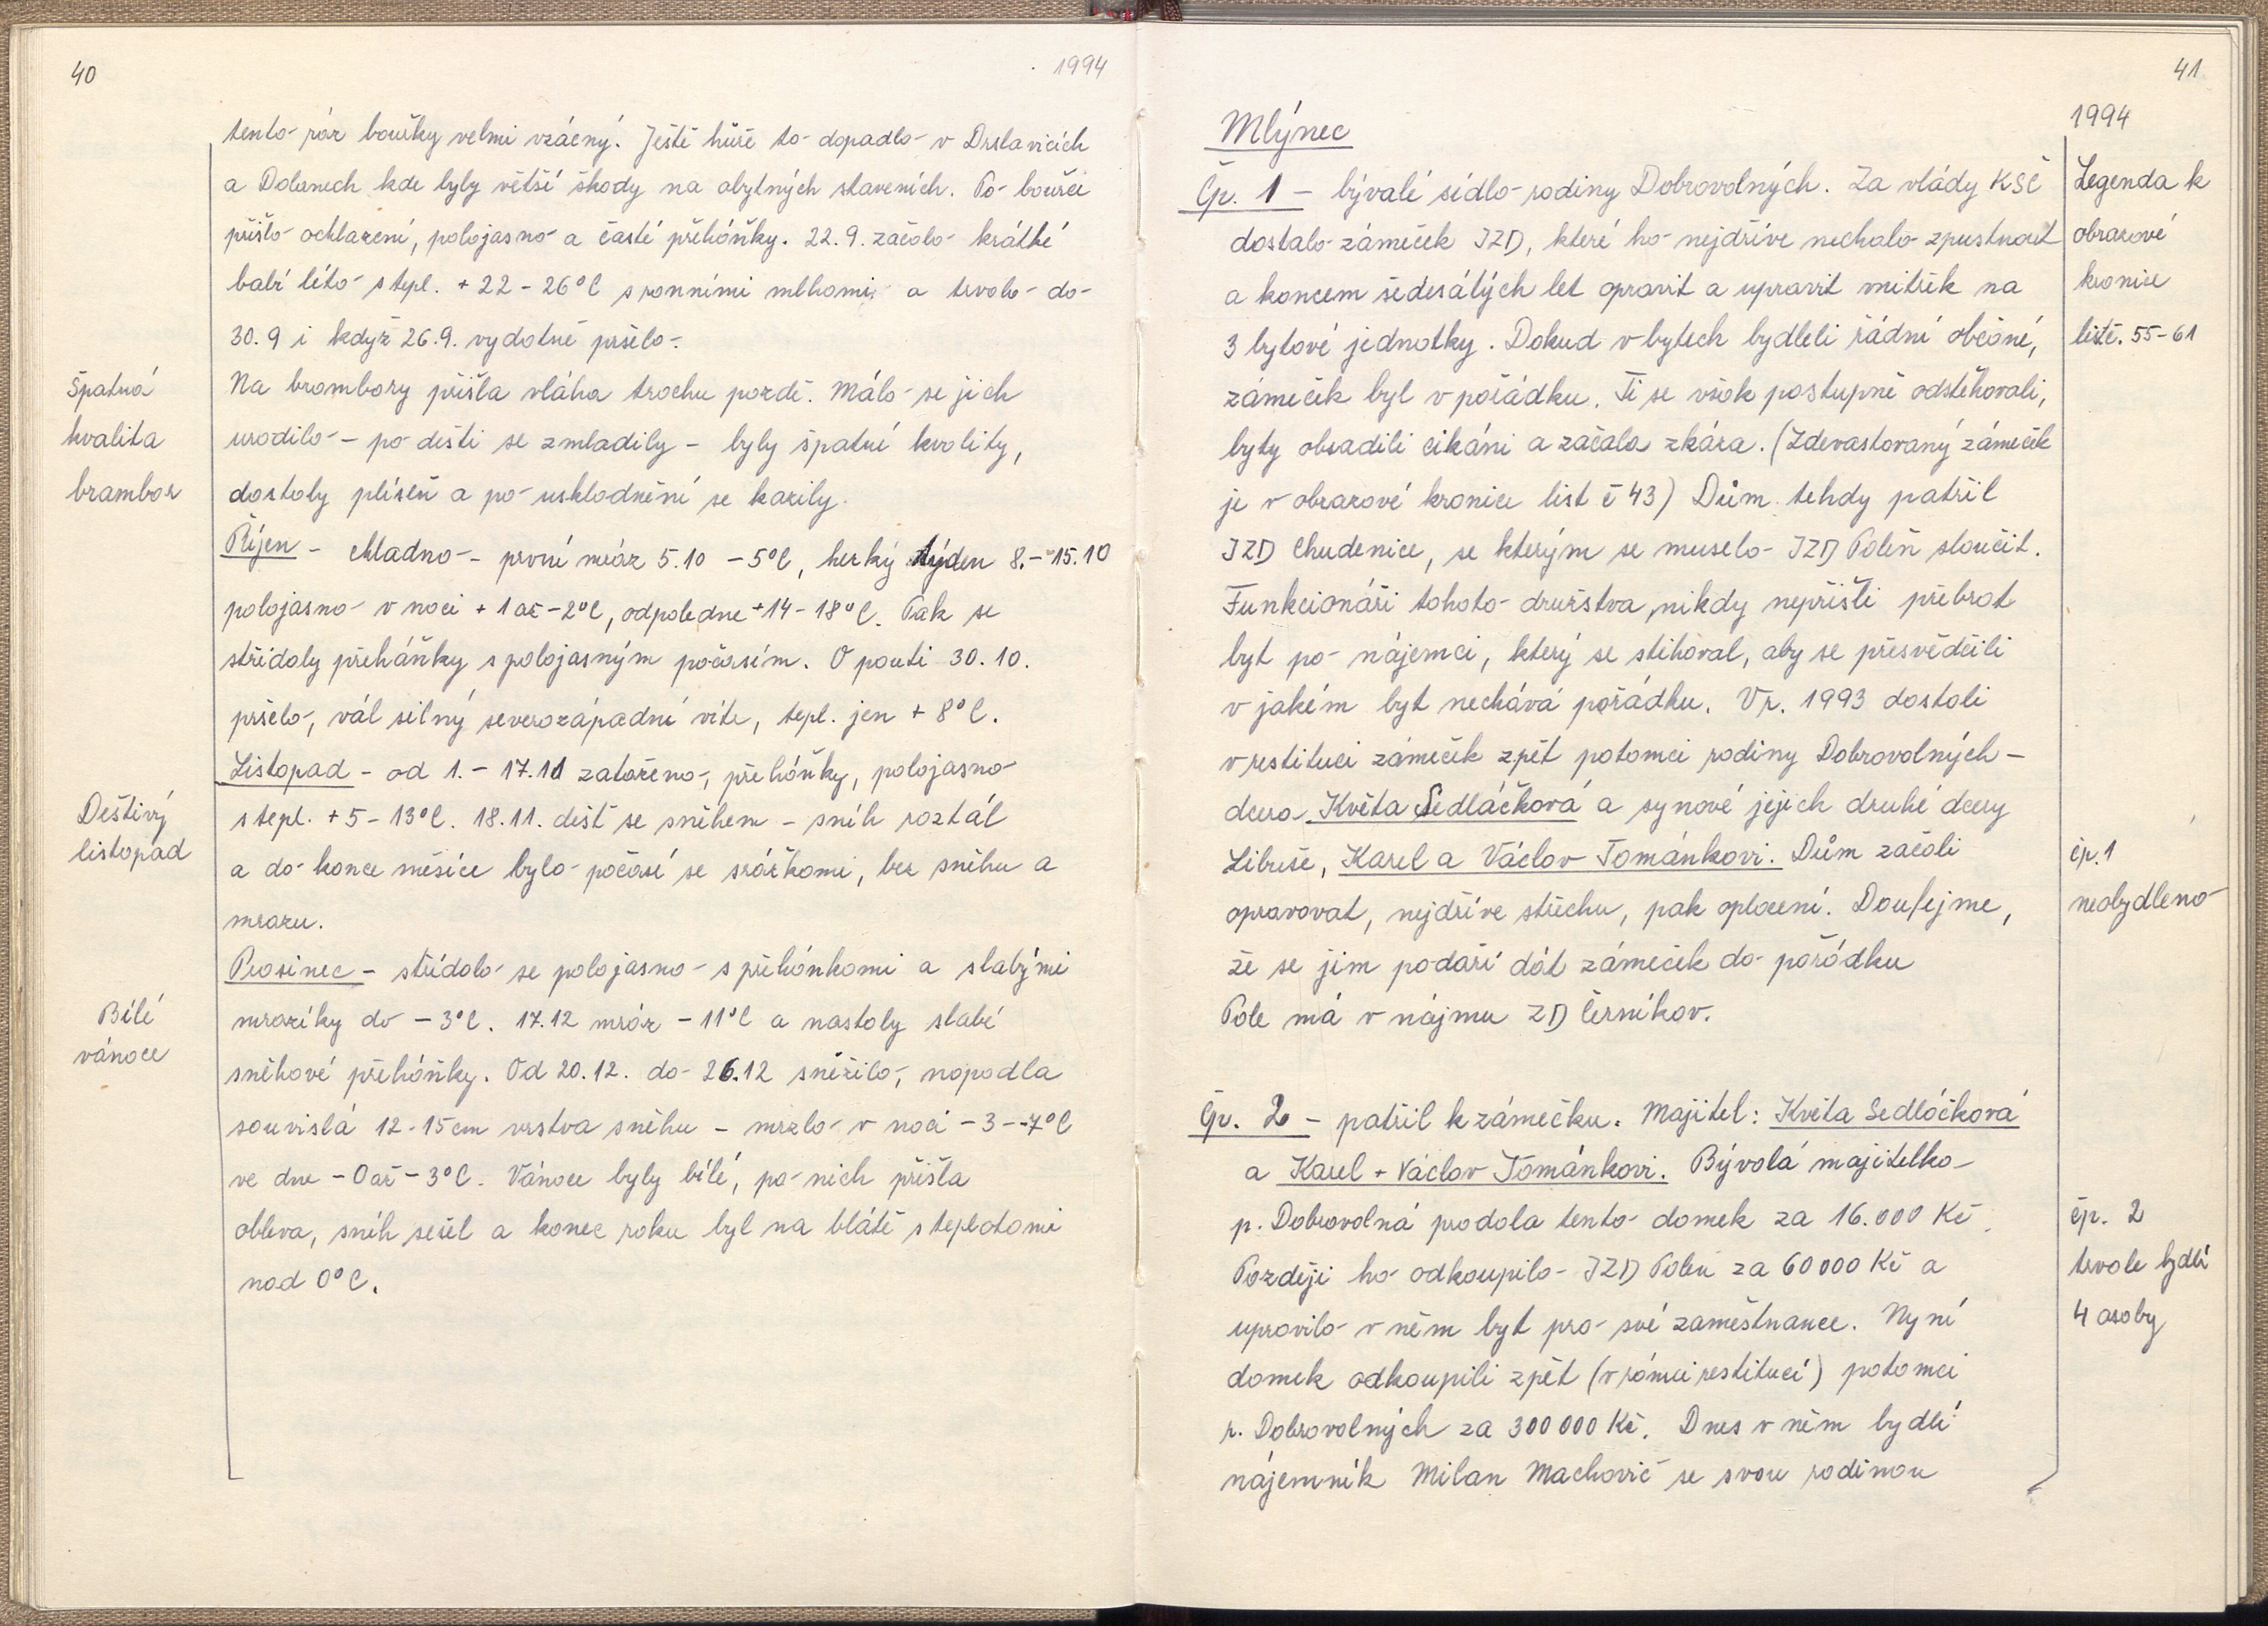 40
1994
tento pár bouřky velmi vzácný. Ještě hůře to dopadlo v Drslavicích
a Dolanech kde byly větší škody na obytných staveních. Po bouřci
přišlo ochlazení, polojasno a časté přeháňky. 22.9. začalo krátké
babí léto s tepl. + 22 - 26°C s ranními mlhami a trvalo do
30.9 i když 26.9. vydatně pršelo.
Špatná
kvalita
brambor
Na brambory přišla vláha trochu pozdě. Málo se jich
urodilo - po dešti se zmladily - byly špatné kvality,
dostaly plíseň a po uskladnění se kazily.
Říjen - chladno - první mráz 5.10 - 5°C, hezký týden 8. - 15.10
polojasno v noci + 1 až - 2°C, odpoledne + 14 - 18°C. Pak se
střídaly přeháňky s polojasným počasím. O pouti 30.10.
pršelo, vál silný severozápadní vítr, tepl. jen + 8°C.
Deštivý
listopad
Listopad - od 1. - 17.11 zataženo, přeháňky, polojasno
s tepl. + 5 - 13°C. 18.11. déšť se sněhem - sníh roztál
a do konce měsíce bylo počasí se srážkami, bez sněhu a
mrazu.
Bílé
vánoce
Prosinec - střídalo se polojasno s přehánkami a slabými
mrazíky do - 3°C. 17.12 mráz - 11°C a nastaly slabé
sněhové přeháňky. Od 20.12. do 26.12 sněžilo, napadla
souvislá 12 - 15 cm vrstva sněhu - mrzlo v noci - 3 - -7°C
ve dne - 0 až - 3°C. Vánoce byly bílé, po nich přišla
obleva, sníh sešel a konec roku byl na blátě s teplotami
nad 0°C.
41
1994
Legenda k
obrazové
kronice
listč. 55 - 61
Mlýnec
Čp. 1 - bývalé sídlo rodiny Dobrovolných. Za vlády KSČ
dostalo zámeček JZD, které ho nejdříve nechalo zpustnout
a koncem šedesátých let opravit a upravit vnitřek na
3 bytové jednotky. Dokud v bytech bydleli řádní občané,
zámeček byl v pořádku. Ti se však postupně odstěhovali,
byty obsadili cikáni a začala zkáza. (Zdevastovaný zámeček
je v obrazové kronice list č 43) Dům tehdy patřil
JZD Chudenice, se kterým se muselo JZD Poleň sloučit.
Funkcionáři tohoto družstva nikdy nepřišli přebrat
byt po nájemci, který se stěhoval, aby se přesvědčili
v jakém byt nechává pořádku. V r. 1993 dostali
v restituci zámeček zpět potomci rodiny Dobrovolných -
dcera Květa Sedláčková a synové jejich druhé dcery
Libuše, Karel a Václav Tománkovi. Dům začali
opravovat, nejdříve střechu, pak oplocení. Doufejme,
že se jim podaří dát zámeček do pořádku
Pole má v nájmu ZD Černíkov.
čp. 1
neobydleno
Čp. 2 - patřil k zámečku. Majitel: Květa Sedláčková
a Karel + Václav Tománkovi. Bývalá majitelka
p. Dobrovolná prodala tento domek za 16.000 Kč.
Později ho odkoupilo JZD Poleň za 60 000 Kč a
upravilo v něm byt pro své zaměstnance. Nyní
domek odkoupili zpět (v rámci restitucí) potomci
r. Dobrovolných za 300 000 Kč. Dnes v něm bydlí
nájemník Milan Machovič se svou rodinou
čp. 2
trvale bydlí
4 osoby